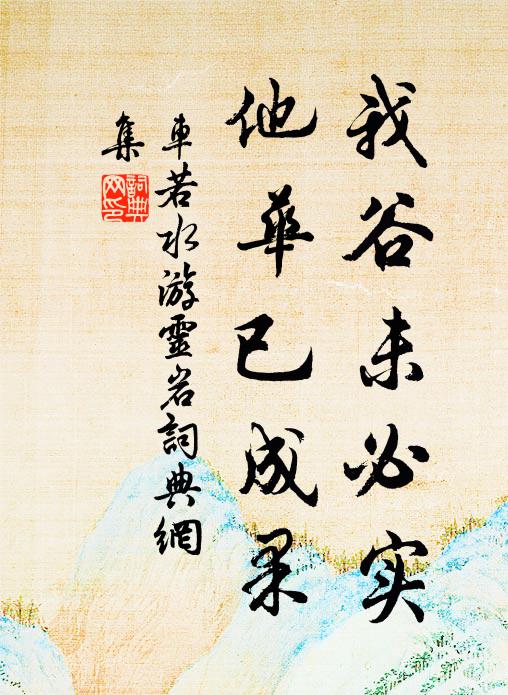 我谷未必实
他華已成果
車若水游靈岩詞典網
集
詞典网印